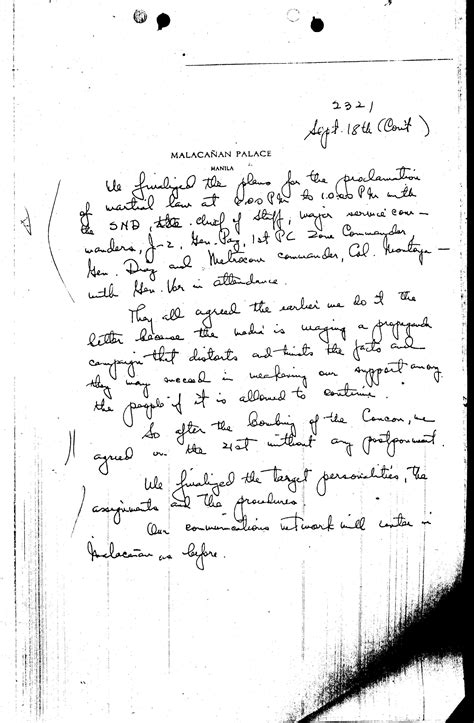 2321
Sept. 18th (Con't)
MALACAÑAN PALACE
MANILA
We finalized the plans for the proclamation
of martial law at 8:00 PM to 10:00 PM with
the SND, the chief of staff, major service com-
manders, J-2, Gen. Paz, 1st PC Zone Commander,
Gen. Diaz and Metrocom commander, Col. Montoya -
with Gen. Ver in attendance.
They all agreed the earlier we do it the
better because the media is waging a propaganda
campaign that distorts and twists the facts and
they may succeed in weakening our support among
the people if it is allowed to continue.
So after the bombing of the Concon, we
agreed on the 21st without any postponement.
We finalized the target personalities, the
assignments and the procedures.
Our communications network will center in
Malacañan as before.